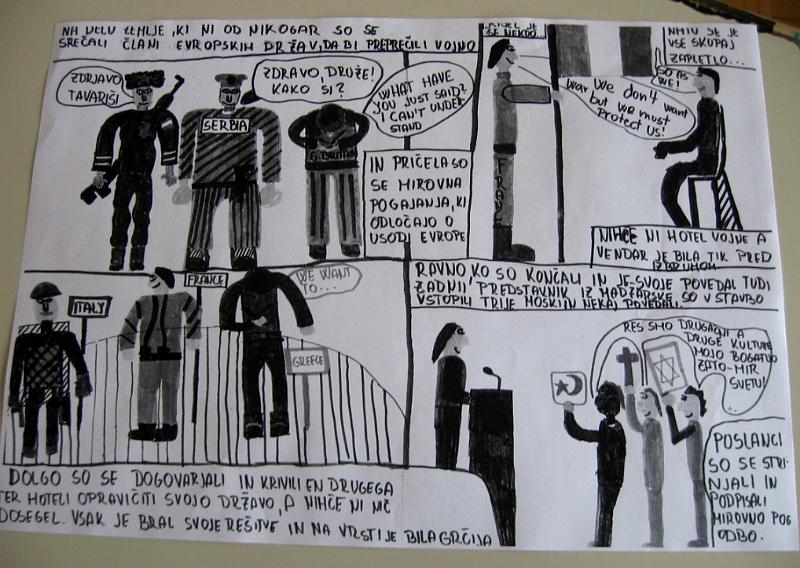 NA DELU ZEMLJE, KI NI OD NIKOGAR SO SE
SREČALI ČLANI EVROPSKIH DRŽAV, DA BI PREPREČILI VOJNO
ZDRJAVO
TAVARIŠI
ZDRAVO, DRUŽE!
KAKO SI?
WHAT HAVE
YOU JUST SAID?
I CAN'T UNDER-
STAND
SERBIA
G. BRITAIN
IN PRIČELA SO
SE MIROVNA
POGAJANJA, KI
ODLOČAJO O
USODI EVROPE
SE NEKDO...
NATO SE JE
VSE SKUPAJ
ZAPLETLO...
SO AS
WE!
War We don't want
but we must
Protect US!
FRANC
NIHČE NI HOTEL VOJNE A
VENDAR JE BILA TIK PRED
IZBRUHOM
ITALY
FRANCE
WE WANT
TO...
GREECE
DOLGO SO SE DOGOVARJALI IN KRIVILI EN DRUGEGA
TER HOTELI OPRAVIČITI SVOJO DRŽAVO, A NIHČE NI NIČ
DOSEGEL. VSAK JE BRAL SVOJE REŠITVE IN NA VRSTI JE BILA GRČIJA
RAVNO, KO SO KONČALI IN JE SVOJE POVEDAL TUDI
ZADNJI PREDSTAVNIK IZ MADŽARSKE SO V STAVBO
VSTOPILI TRIJE MOŠKI IN NEKAJ POVEDALI.
RES SMO DRUGAČNI A
DRUGE KULTURE
MOJO BOGATIJO
ZATO-MIR
SVETU!
POSLANCI
SO SE STRI-
NJALI IN
PODPISALI
MIROVNO POG
ODBO.